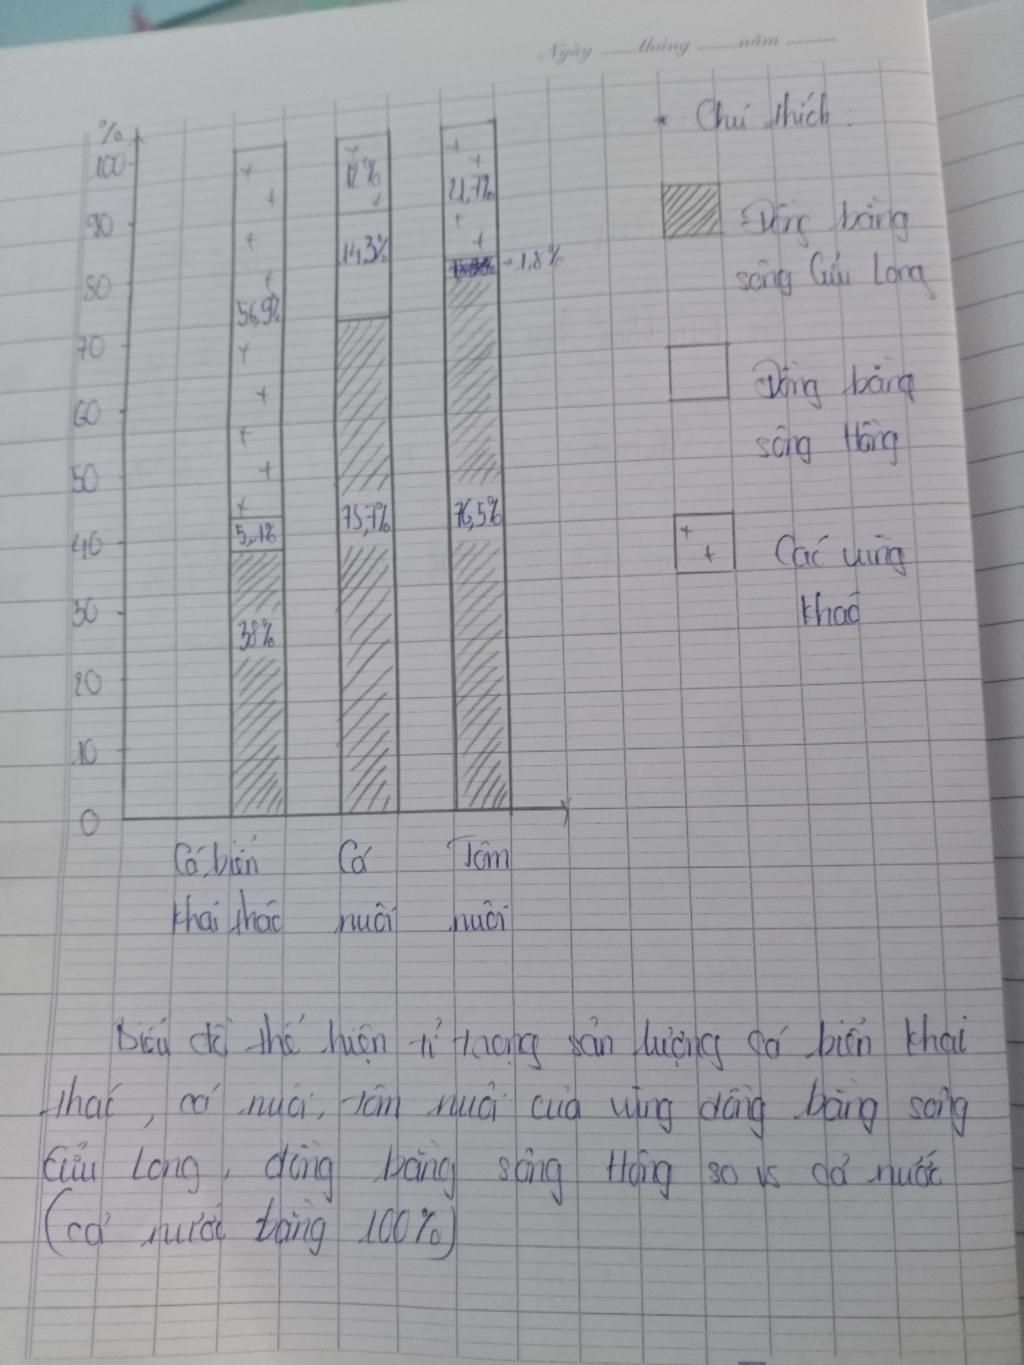 Ngày ........tháng ........năm ..........
%
100
90
80
70
60
50
40
30
20
10
0
56,9%
5,1%
38%
12%
14,3%
75,7%
21,7%
1,8%
76,5%
* Chú thích:
Đồng bằng
sông Cửu Long
Đồng bằng
sông Hồng
Các vùng
khác
Cá biển
khai thác
Cá
nuôi
Tôm
nuôi
Biểu đồ thể hiện tỉ trọng sản lượng cá biển khai
thác, cá nuôi, tôm nuôi của vùng đồng bằng sông
Cửu Long, đồng bằng sông Hồng so vs cả nước
(cả nước bằng 100%)